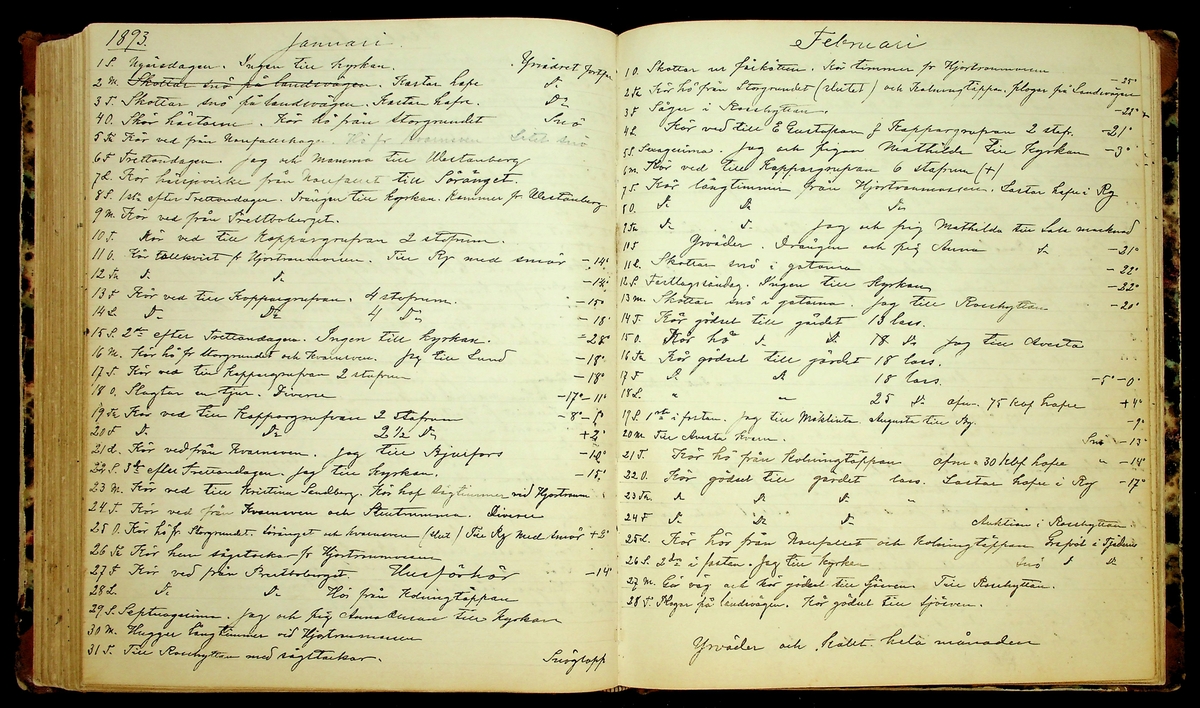 1893. Januari.
1 S. Nyårsdagen. Ingen till Kyrkan. Yrvädret fortfar
2 M. Skottar snö på landsvägen. Kastar hafre D:o
3 T. Skottar snö på landsvägen. Kastar hafre. D:o
4 O. Skor hästarne. Kör hö från Storgrundet Snö
5 Th Kör ved från Hö fr Kvarnsven Litet snö
6 F Trettondagen. Jag och Mamma till Westanberg
7 L. Kör från till Söränget.
8 S. 1sta efter Trettondagen. Drängen till Kyrkan. Kommer fr Westanberg
9 M. Kör ved från Brittboberget.
10 T. Kör ved till Koppargrufvan 2 stafrum.
11 O. Kör fr Hjortronmossen. Till Ry med smör - 14°
12 Th D:o D:o - 14°
13 F Kör ved till Koppargrufvan. 4 stafrum. - 15°
14 L. D:o D:o 4 D:o - 18°
15 S. 2dra efter Trettondagen. Ingen till Kyrkan. - 28°
16 M. Kör hö fr Storgrundet och Kvarnsven. Jag till Lund - 18°
17 T. Kör ved till Koppargrufvan 2 stafrum - 18°
18 O. Slagtar en tjur. Diverse - 17° - 11°
19 Th Kör ved till Koppargrufvan 2 stafrum - 8°
20 F D:o D:o 2 1/2 D:o + 2°
21 L. Kör ved från Kvarnsven. Jag till Bjurfors - 10°
22 S. 3dje efter Trettondagen. Jag till Kyrkan. - 15°
23 M. Kör ved till Kristina Sandberg. Kör hop sågtimmer vid Hjortronm
24 T. Kör ved från Kvarnsven och Diverse
25 O. Kör hö fr Storgrundet Söränget och Kvarnsven (slut) Till Ry med smör + 2°
26 Th Kör hem sågstockar fr Hjortronmossen
27 F Kör ved från Brittboberget. Husförhör - 14°
28 L D:o D:o Hö från Kolningtäppan
29 S. Septuagesima. Jag och pig Anna till Kyrkan
30 M. Hugger långtimmer vid Hjortronmossen
31 T. Till Rosshyttan med sågstockar. Snöglopp
Februari
1 O. Skottar ur fårkätten. Kör timmer fr Hjortronmossen - 25°
2 Th Kör hö från Storgrundet (slutet) och Kolningtäppan. plogar på Landsvägen
3 F Sågar i Rosshyttan. - 28°
4 L Kör ved till E Gustafsson f Koppargrufvan 2 staf. - 21°
5 S. Sexagesima. Jag och pigan Mathilda till Kyrkan - 3°
6 M. Kör ved till Koppargrufvan 6 stafrum (+)
7 T. Kör långtimmer från Hjortronmossen. Lastar hafre i Ry
8 O. D:o D:o D:o
9 Th D:o D:o Jag och pig Mathilda till Sala marknad
10 F Yrväder. Drängen och pig Anna D:o - 21°
11 L. Skottar snö i gatorna - 22°
12 S. Fastlagssöndag. Ingen till Kyrkan - 22°
13 M. Skottar snö i gatorna. Jag till Rosshyttan - 20°
14 T. Kör gödsel till gärdet 13 lass.
15 O. Kör hö D:o D:o 18 D:o Jag till Avesta
16 Th Kör gödsel till gärdet 18 lass.
17 F D:o D:o 18 lass. - 5° - 0°
18 L. " " 25 D:o afm. 75 kbf hafre + 4°
19 S. 1sta i fastan. Jag till Möklinta Augusta till Ry. - 9°
20 M. Till Avesta kvarn. Snö - 13°
21 T. Kör hö från Kolningtäppan afm. 30 kbf hafre " - 14°
22 O. Kör gödsel till gärdet lass. Lastar hafre i Ry - 17°
23 Th D:o D:o D:o "
24 F D:o D:o D:o Auktion i Rosshyttan.
25 L. Kör hö från och Kolningtäppan Grafööl i
26 S. 2dra i fastan. Jag till Kyrkan Snö D:o
27 M. Gör väg och kör gödsel till Sjösven. Till Rosshyttan.
28 T. Plogar på landsvägen. Kör gödsel till Sjösven.
Yrväder och kallt hela månaden